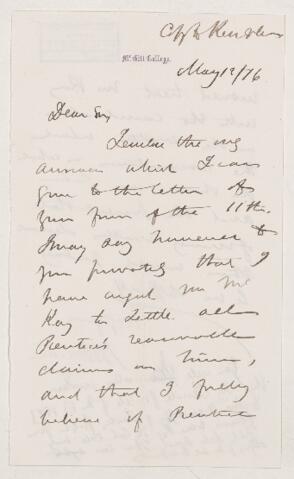 McGill College.
May 12/76
Dear Sir,
I enclose the only
answer which I can
give to the letter of
your firm of the 11th.
I may say however to
you privately that I
have urged on Mr
Kay to settle all
Prentice's reasonable
claims on him,
and that I fully
believe if Prentice